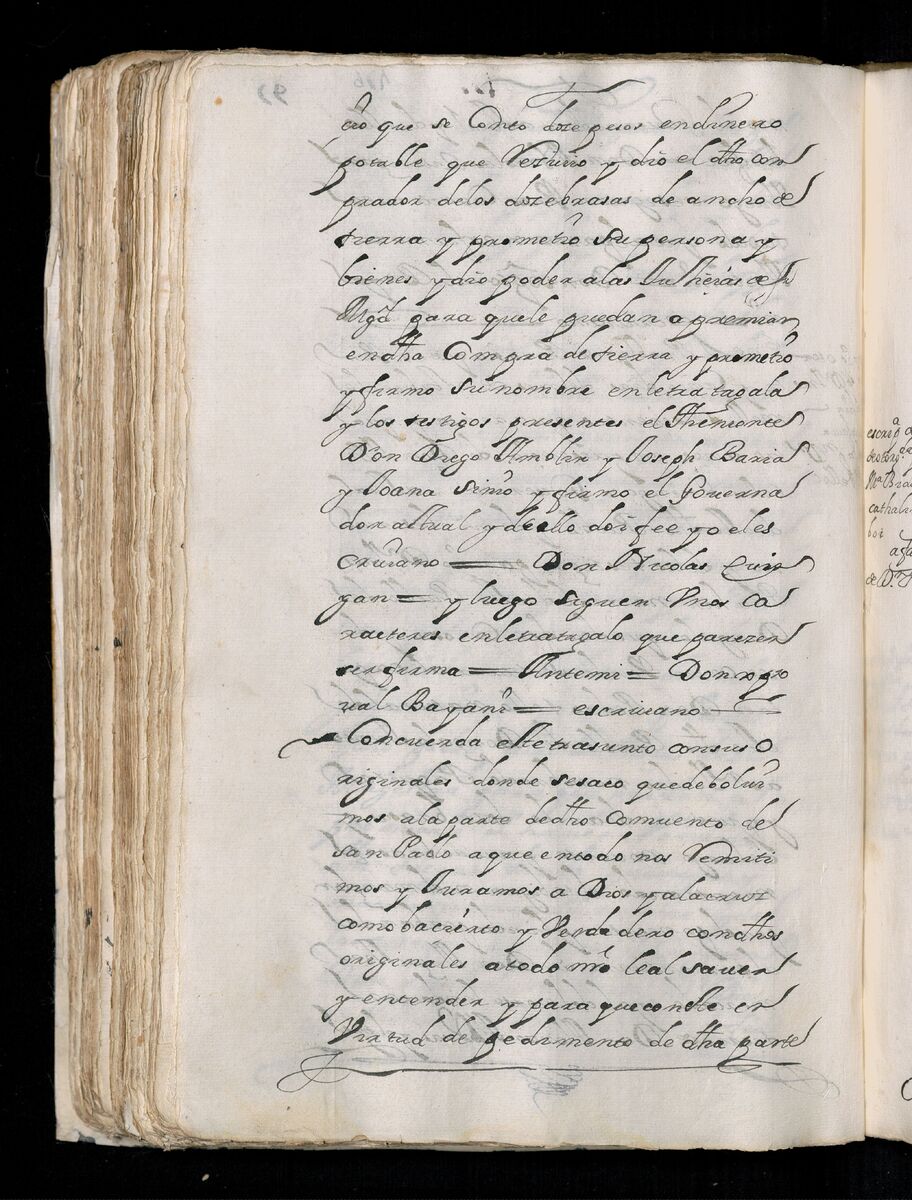 cio que se Conto doze pesos endinero
potable que Reziuio y dio el dho con
prador delos doze brasas de ancho de
tierra y prometio su persona y
bienes y dio poder alas Justicias de su
Magd para quele puedan a premiar
endha Compra de tierra y prometio
y firmo su nombre en letra tagala
y los testigos presentes el Theniente
Don Diego Amblir y Joseph Baria
y Joana Simo y firmo el Governa
dor actual y de ello doi fee yo el es
criuano = Don Nicolas
pan = y luego siguen Vnos Ca
racteres en letra tagalo que parezen
ser firma = Ante mi = Don
ual Bayani = escriuano
Concuerda este trasunto con sus O
riginales donde se saco que debolui
mos a la parte de dho Comuento de
san Pablo a que en todo nos Remiti
mos y Juramos a Dios y a la cruz
como ba cierto y Verdadero con dhos
originales a todo nro leal sauer
y entender y para que conste en
Virtud de pedimento de dha parte
escria
Ma
cathal
bot
de Dn